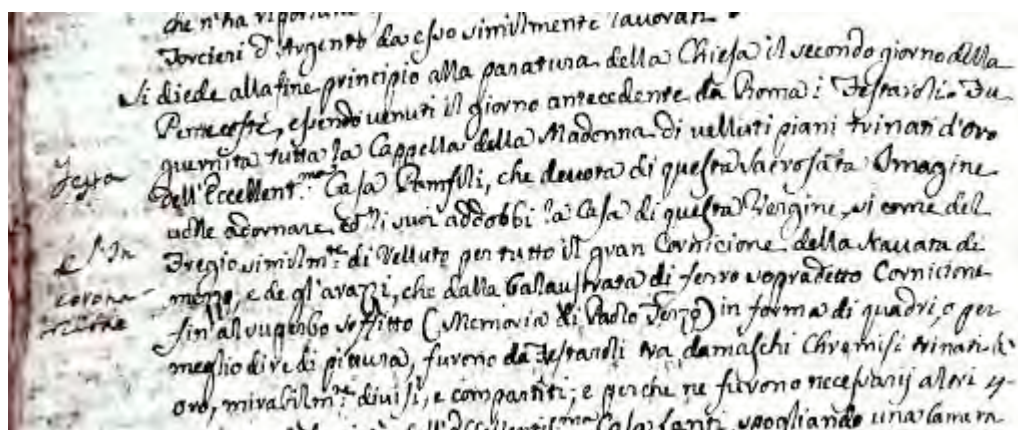 che n'ha riportate
Torcieri d'Argento da esso similmente lavorati
Si diede alla fine principio alla paratura della Chiesa il secondo giorno della
Pentecoste, essendo venuti il giorno antecedente da Roma i Festaroli. Fu
guernita tutta la Cappella della Madonna di velluti piani trinati d'oro
dell'Eccellent.ma Casa Pamfili, che devota di questa sacrosata Imagine
volle adornare co i suoi addobbi la Casa di questa Vergine, si come del
Fregio similm.te di Velluto per tutto il gran Cornicione della Navata di
mezzo, e de gl'arazzi, che dalla balaustrata di ferro sopradetto Cornicione
sin'al superbo soffitto (Memoria di Paolo Terzo) in forma di quadri, o per
meglio dire di pittura, furono da Festaroli tra damaschi Chremisi trinati d'
oro, mirabilm.te divisi, e compartiti; e perche ne furono necessarij altri
dell'Eccellentiss.ma Casa spogliando una Camera
Festa
e l'In
corona-
tione